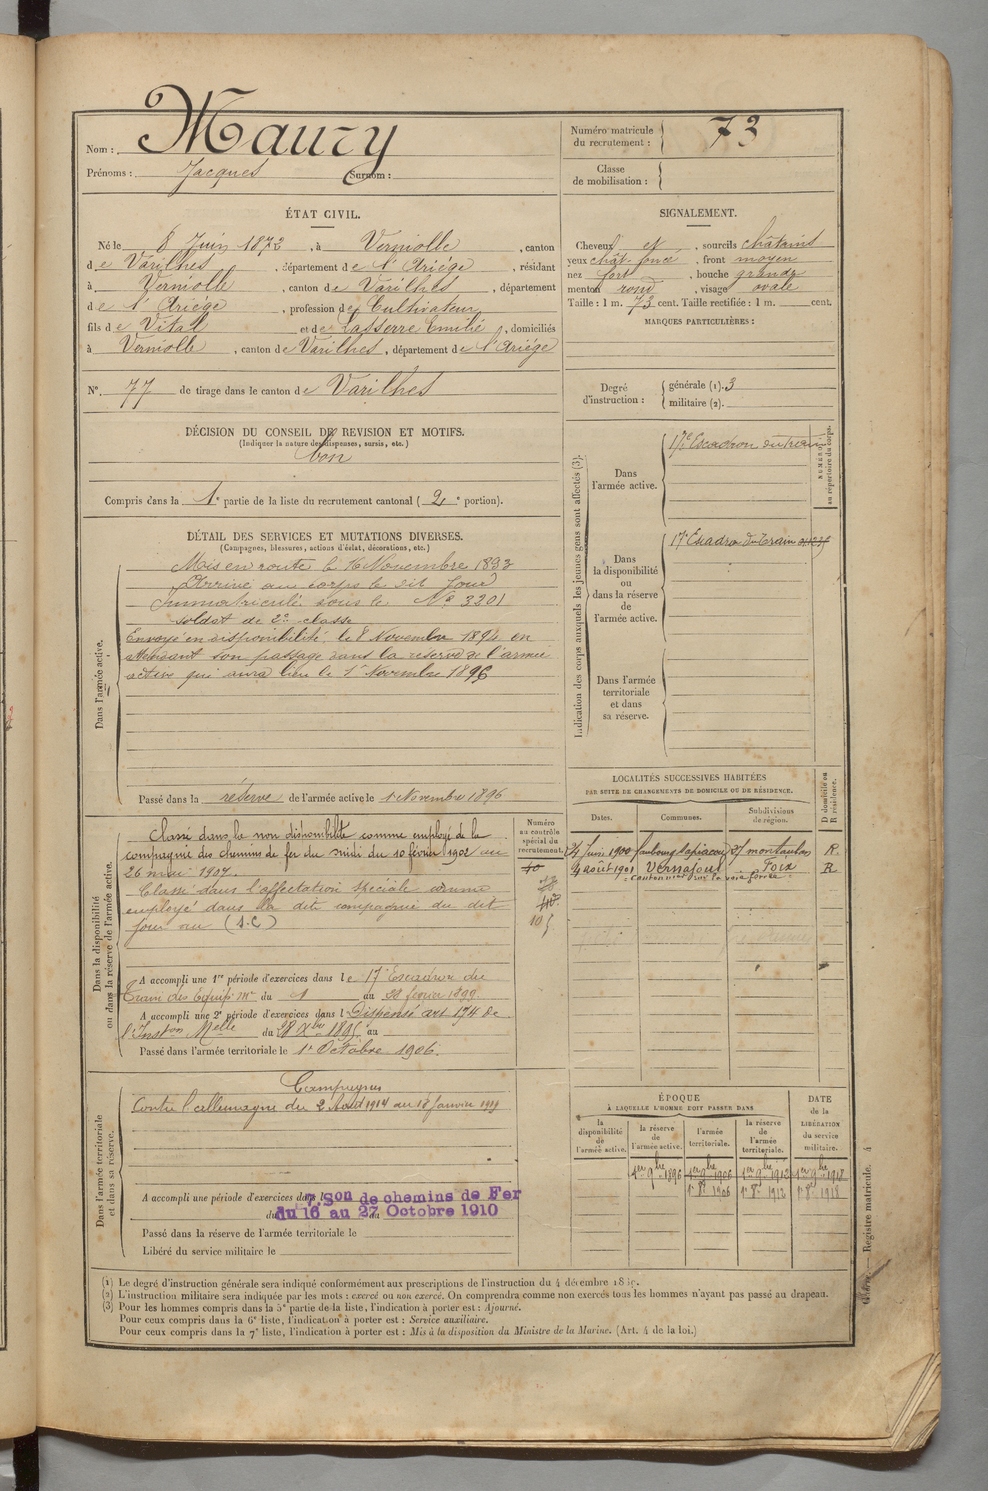 Nom : Maury
Prénoms : Jacques Surnom :
Numéro matricule du recrutement : 73
Classe de mobilisation :
ÉTAT CIVIL.
Né le 8 Juin 1872, à Verniolle, canton
de Varilhes, département de l'Ariége, résidant
à Verniolle, canton de Varilhes, département
de l'Ariége, profession de Cultivateur
fils de Vital et de Lasserre Emilie, domiciliés
à Verniolle, canton de Varilhes, département de l'Ariége
N° 77 de tirage dans le canton de Varilhes
DÉCISION DU CONSEIL DE REVISION ET MOTIFS.
(Indiquer la nature des dispenses, sursis, etc.)
bon
Compris dans la 1e partie de la liste du recrutement cantonal (2e portion).
SIGNALEMENT.
Cheveux et, sourcils châtains
yeux chât. foncé, front moyen
nez fort, bouche grande
menton rond, visage ovale
Taille : 1 m. 73 cent. Taille rectifiée : 1 m. cent.
MARQUES PARTICULIÈRES :
Degré d'instruction : générale (1). 3
militaire (2).
Indication des corps auxquels les jeunes gens sont affectés (3).
NUMÉRO au répertoire du corps.
Dans l'armée active. 17e Escadron du train
Dans la disponibilité ou dans la réserve de l'armée active. 17e Escadron du train
Dans l'armée territoriale et dans sa réserve.
DÉTAIL DES SERVICES ET MUTATIONS DIVERSES.
(Campagnes, blessures, actions d'éclat, décorations, etc.)
Dans l'armée active.
Mis en route le 16 Novembre 1893
Arrivé au corps le dit jour
Immatriculé sous le N° 3201
soldat de 2e classe
Envoyé en disponibilité le 8 Novembre 1894 en
attendant son passage dans la réserve de l'armée
active qui aura lieu le 1er Novembre 1896
Passé dans la réserve de l'armée active le 1 Novembre 1896
Dans la disponibilité ou dans la réserve de l'armée active.
Numéro au contrôle spécial du recrutement.
Classé dans la non disponibilité comme employé de la
compagnie des chemins de fer du midi du 10 février 1902 au
26 mai 1907.
Classé dans l'affectation spéciale comme
employé dans la dite compagnie du dit
jour au (s.c)
A accompli une 1re période d'exercices dans le 17e Escadron du
Train des Équip. Mre du 1 au 28 février 1899.
A accompli une 2e période d'exercices dans l Dispensé art 194 de
l'Inston Melle du 28 Xbre 1895 au
Passé dans l'armée territoriale le 1er Octobre 1906.
LOCALITÉS SUCCESSIVES HABITÉES
PAR SUITE DE CHANGEMENTS DE DOMICILE OU DE RÉSIDENCE.
Dates. Communes. Subdivisions de région. D domicile ou R résidence.
24 Juin 1900 faubourg Sapiacou 27 montauban R.
4 août 1901 Vernajoul Foix R
Dans l'armée territoriale et dans sa réserve.
Campagnes
Contre l'allemagne du 2 Août 1914 au 18 Janvier 1919
A accompli une période d'exercices dans l 7. Son de chemins de Fer
du 16 au 27 Octobre 1910
Passé dans la réserve de l'armée territoriale le
Libéré du service militaire le
ÉPOQUE
À LAQUELLE L'HOMME DOIT PASSER DANS
la disponibilité de l'armée active. la réserve de l'armée active. l'armée territoriale. la réserve de l'armée territoriale. DATE de la LIBÉRATION du service militaire.
1er 9bre 1896 1er 9bre 1906 1er 9bre 1912 1er 9bre 1918
1er 8bre 1906 1er 8bre 1912 1er 8bre 1918
(1) Le degré d'instruction générale sera indiqué conformément aux prescriptions de l'instruction du 4 décembre 18
(2) L'instruction militaire sera indiquée par les mots : exercé ou non exercé. On comprendra comme non exercés tous les hommes n'ayant pas passé au drapeau.
(3) Pour les hommes compris dans la 5e partie de la liste, l'indication à porter est : Ajourné.
Pour ceux compris dans la 6e liste, l'indication à porter est : Service auxiliaire.
Pour ceux compris dans la 7e liste, l'indication à porter est : Mis à la disposition du Ministre de la Marine. (Art. 4 de la loi.)
— Registre matricule. 4